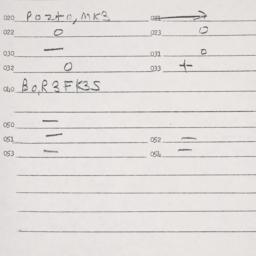 020 Pozto, MK3 021 →
022 O 023 O
030 — 031 O
032 O 033 +
040 BO, R3FK3S
050 —
051 — 052 —
053 — 054 —